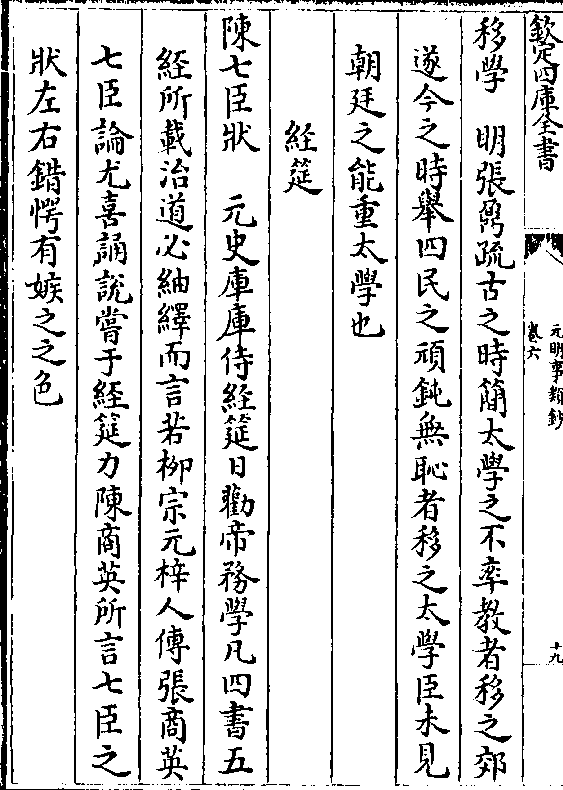 欽定四庫全書
元明事類鈔
卷六
十九
移學　明張鼐疏古之時簡太學之不率教者移之郊
遂今之時舉四民之頑鈍無恥者移之太學臣未見
朝廷之能重太學也
經筵
陳七臣狀　元史庫庫侍經筵日勸帝務學凡四書五
經所載治道必紬繹而言若柳宗元梓人傳張商英
七臣論尤喜誦說嘗于經筵力陳商英所言七臣之
狀左右錯愕有嫉之之色